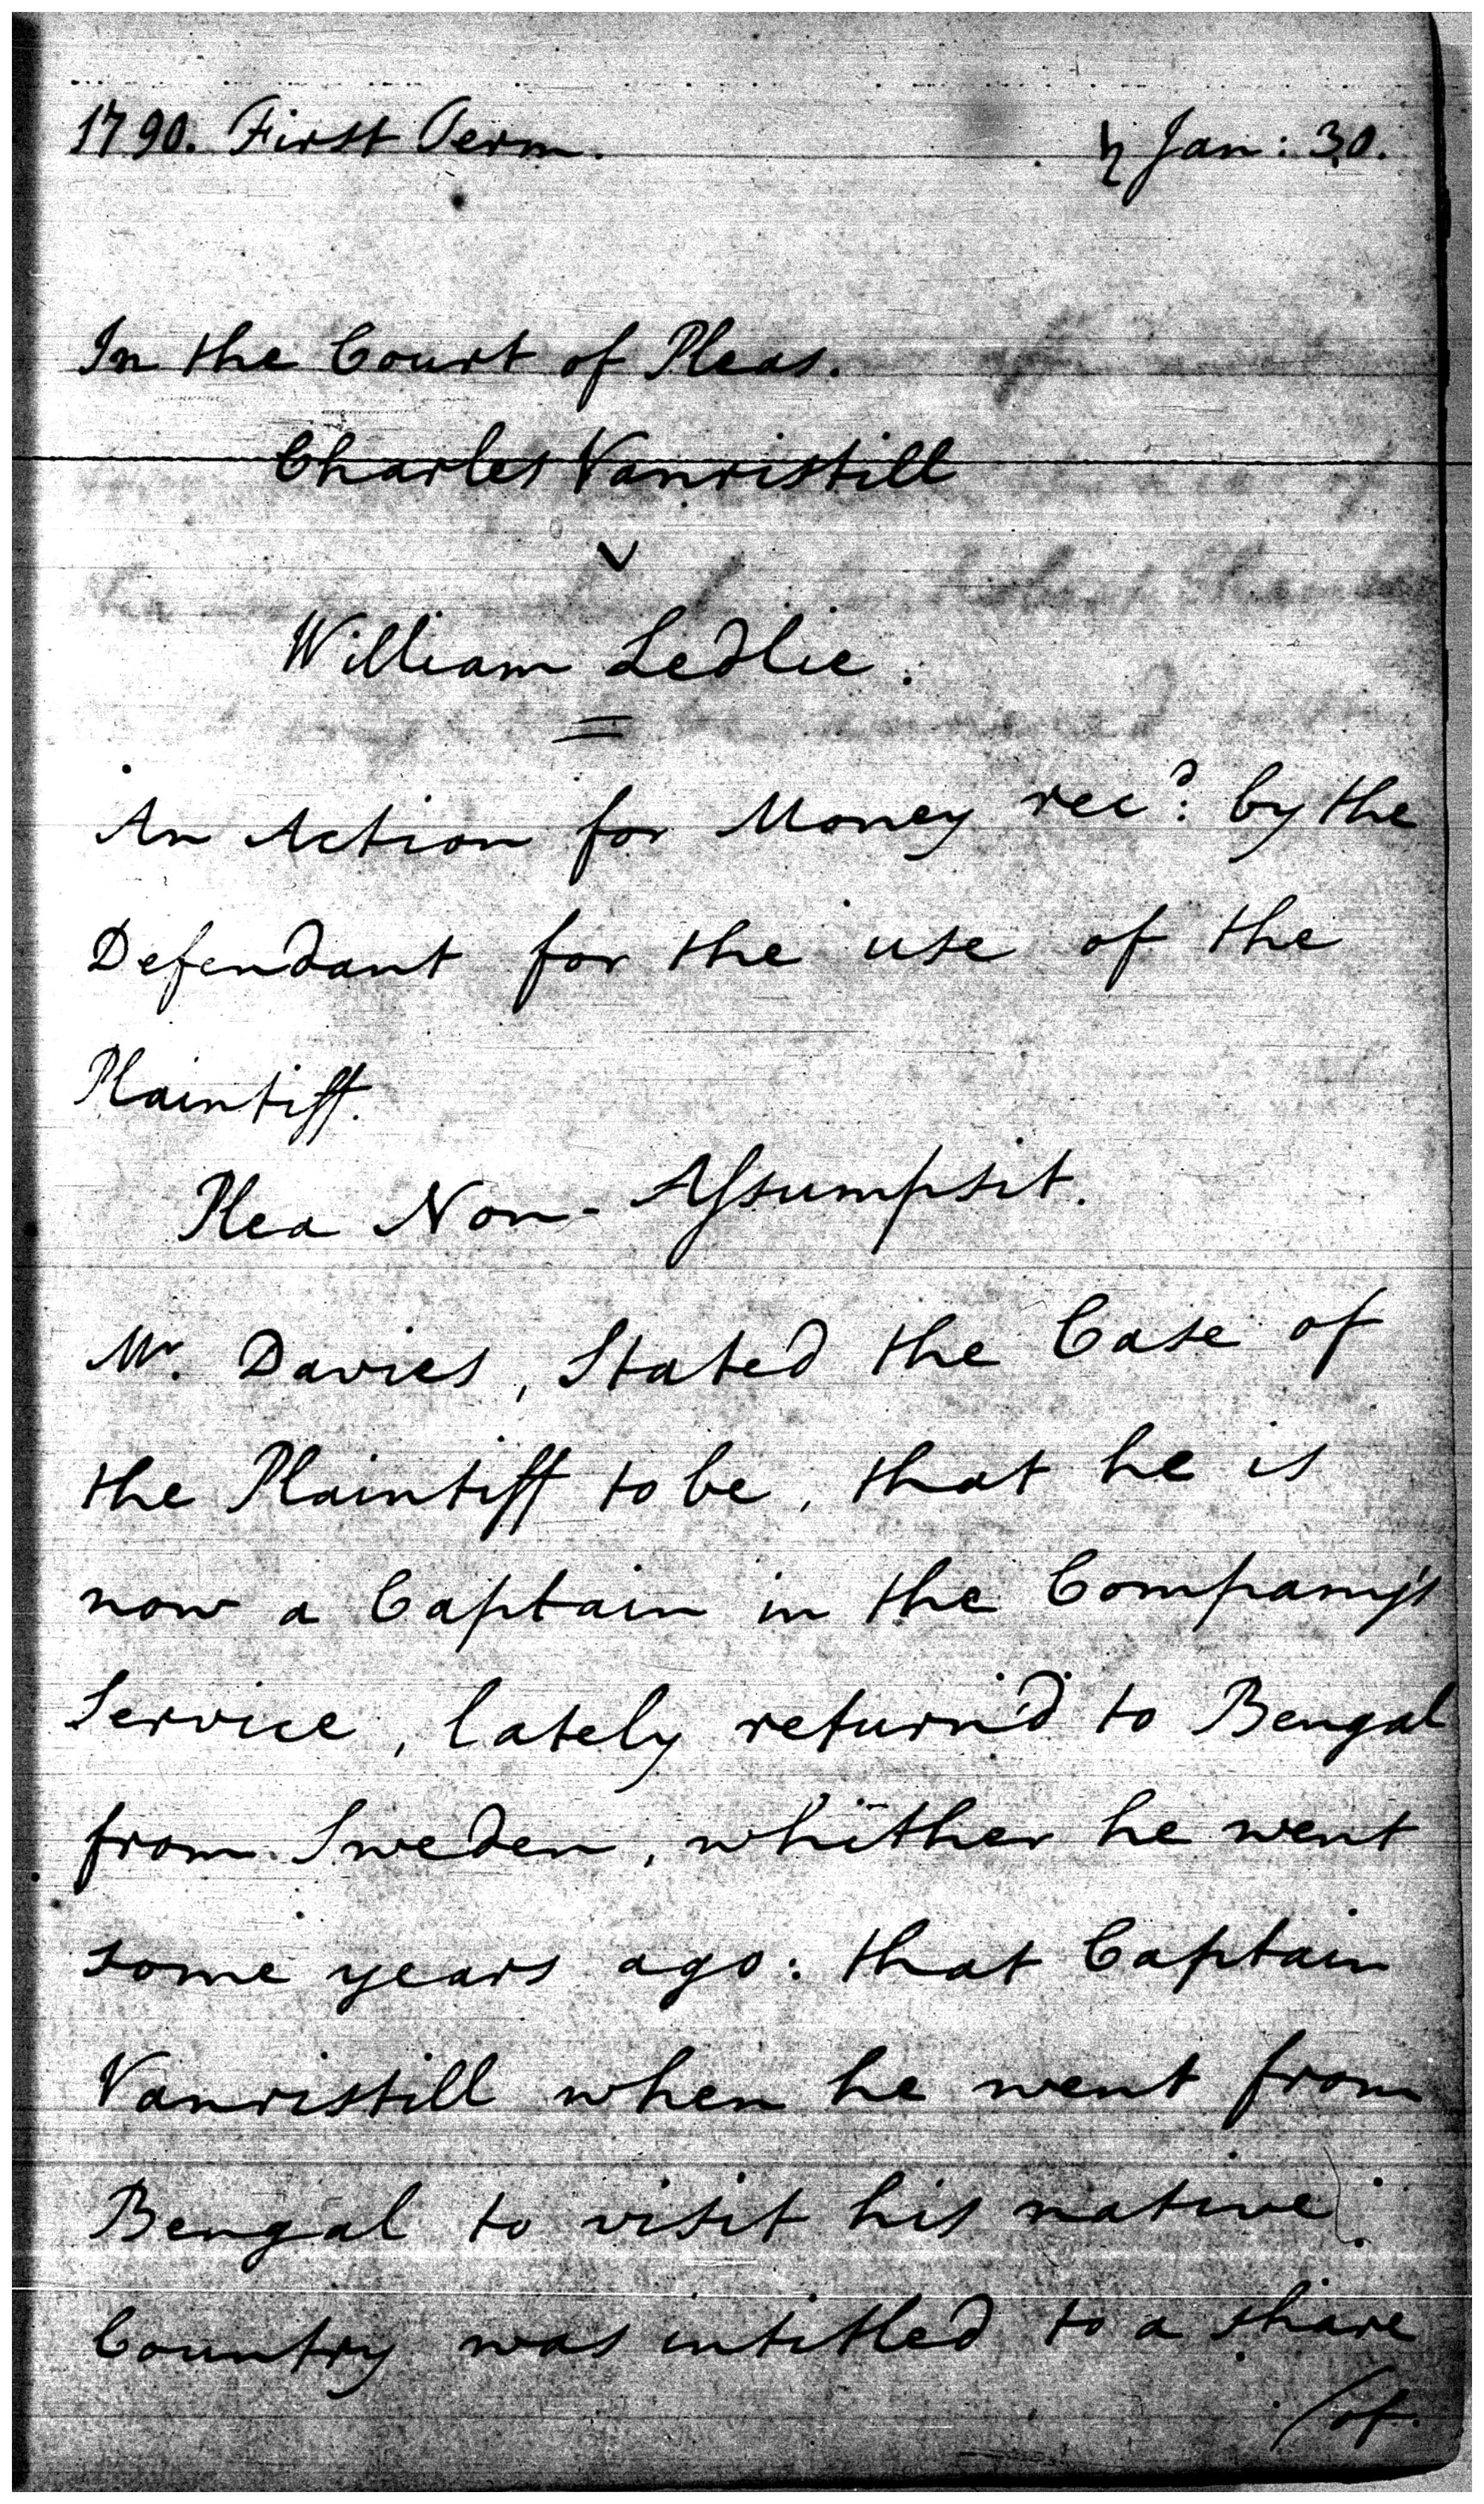 1790. First Term. ♄ Jan: 30.
In the Court of Pleas.
Charles Vanristill
v
William Ledlie.
An Action for Money rec.d by the
Defendant for the use of the
Plaintiff.
Plea Non-Assumpsit.
Mr. Davies, Stated the Case of
the Plaintiff to be, that he is
now a Captain in the Company's
Service, lately return'd to Bengal
from Sweden, whither he went
some years ago: that Captain
Vanristill when he went from
Bengal to visit his native
Country was intitled to a share
/of